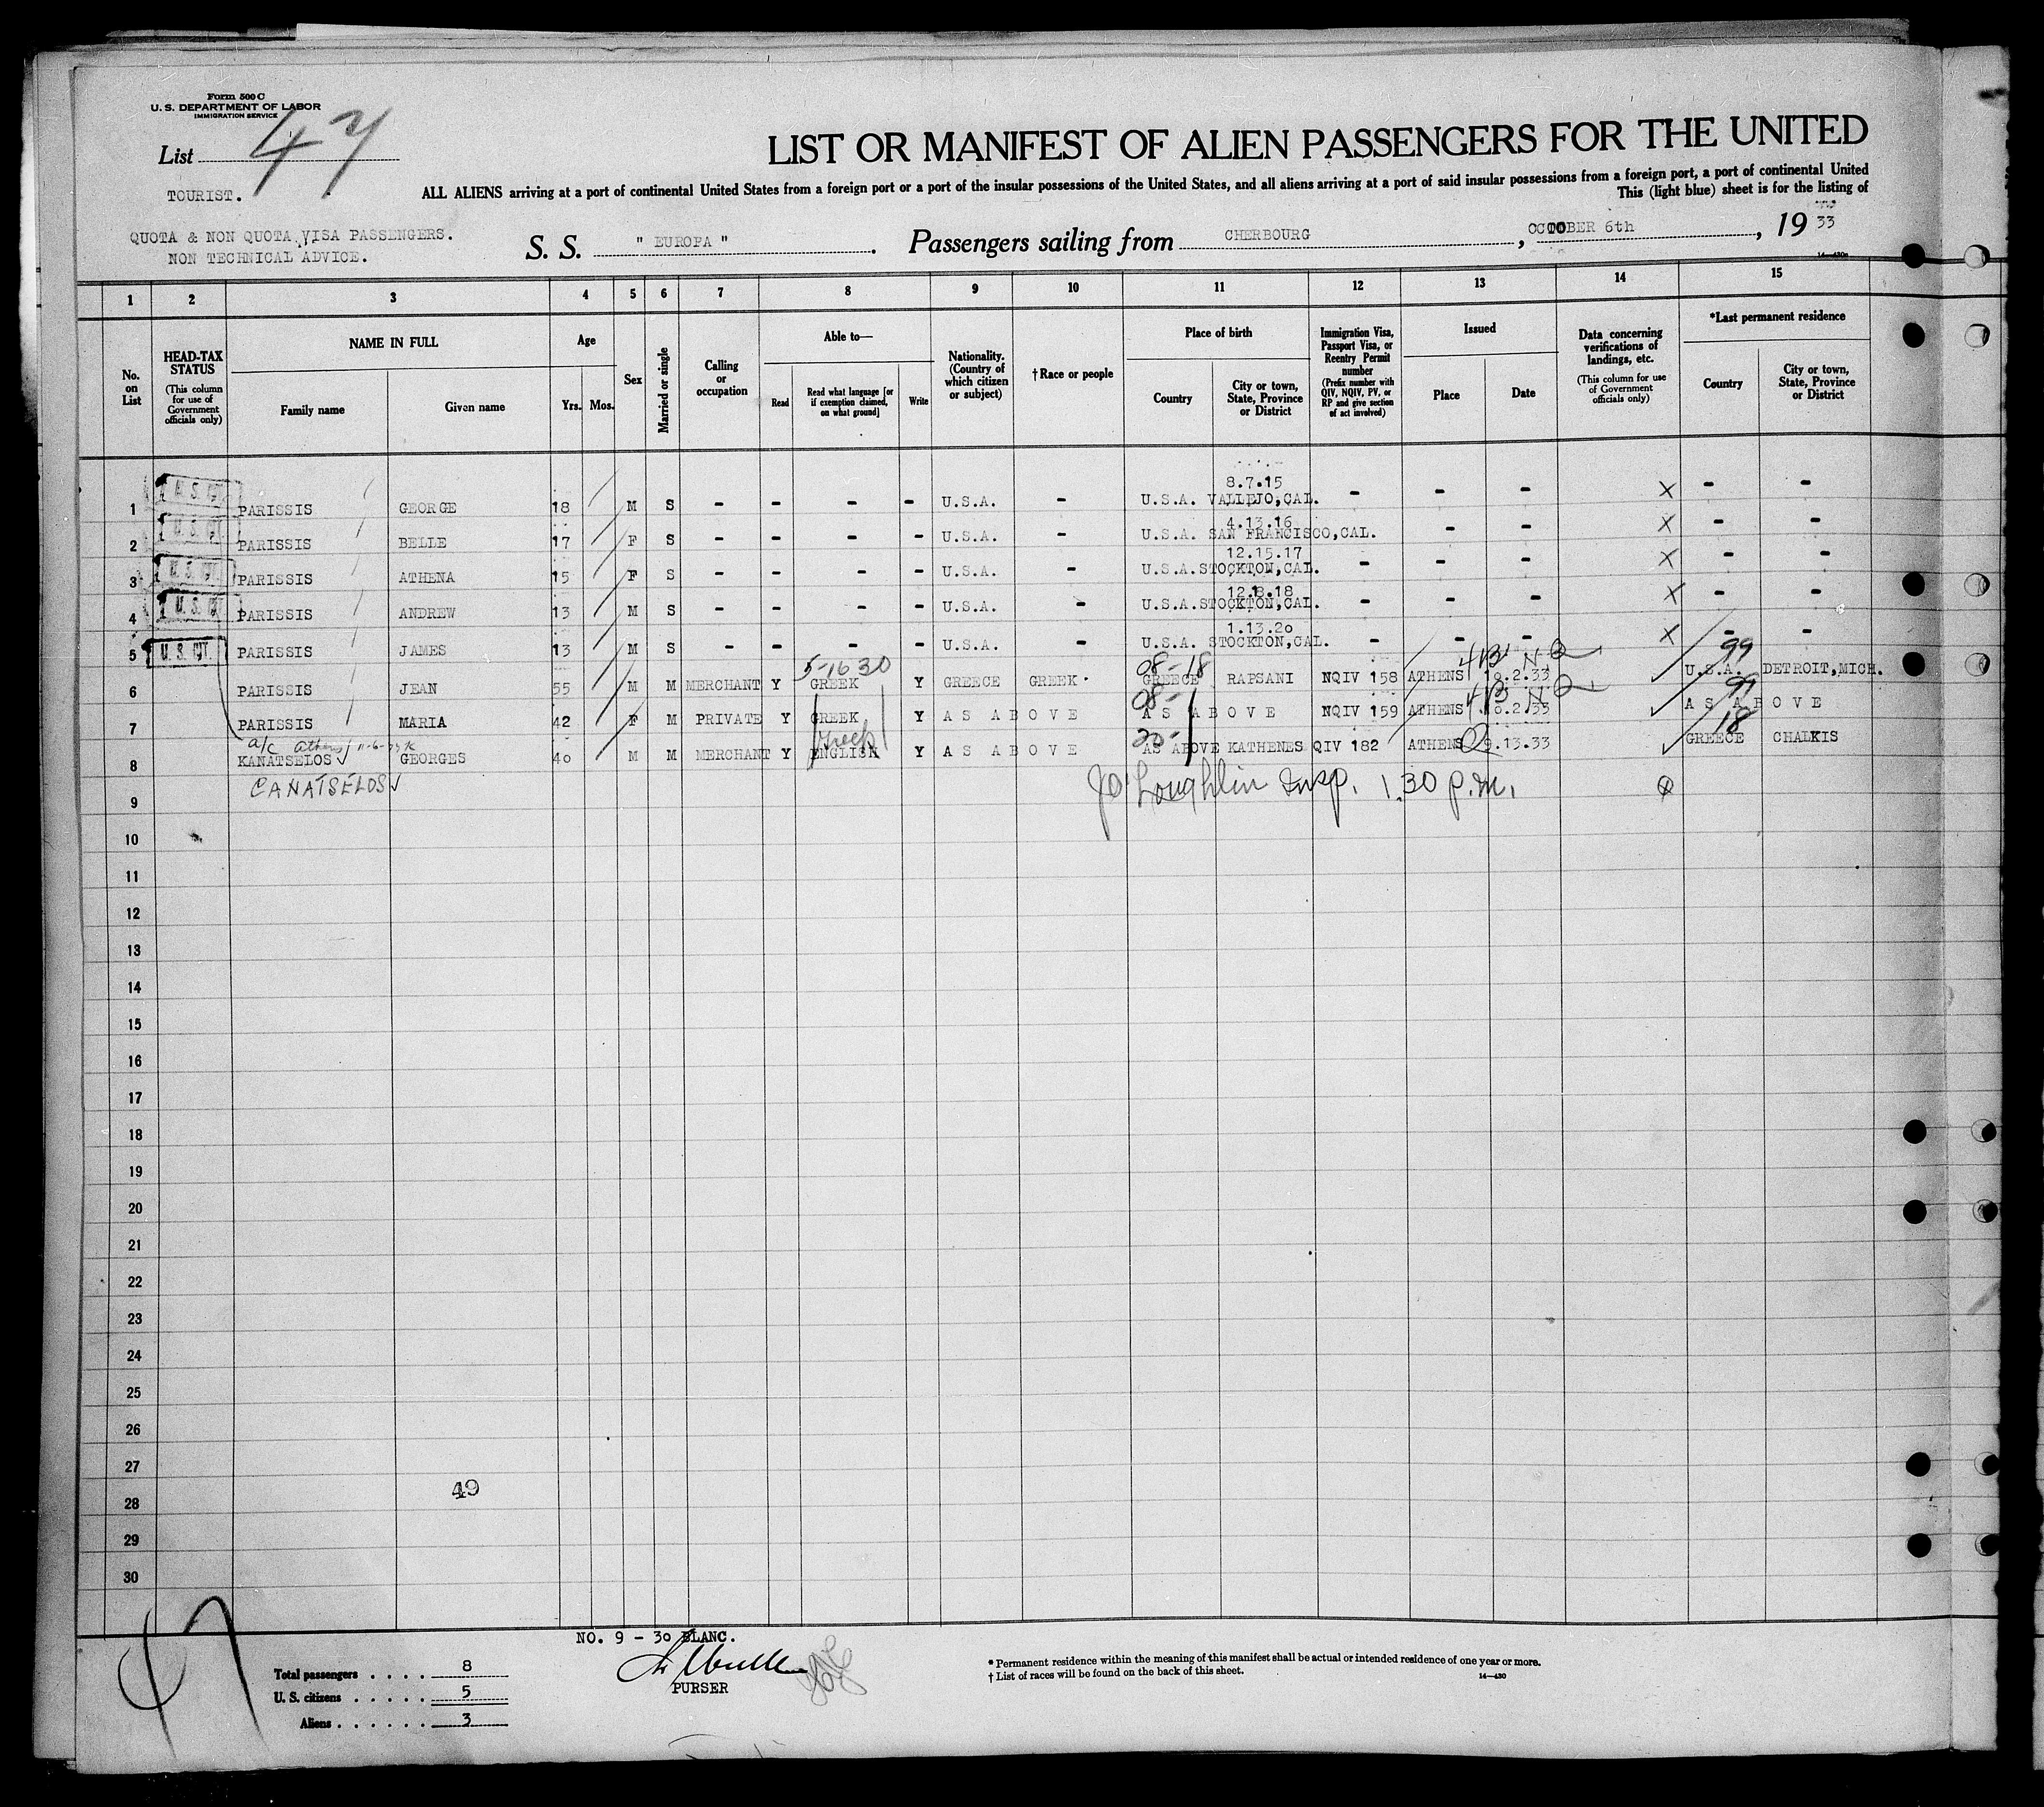 Form 500 C
U. S. DEPARTMENT OF LABOR
IMMIGRATION SERVICE
List 47
TOURIST.
QUOTA & NON QUOTA VISA PASSENGERS.
NON TECHNICAL ADVICE.
LIST OR MANIFEST OF ALIEN PASSENGERS FOR THE UNITED
ALL ALIENS arriving at a port of continental United States from a foreign port or a port of the insular possessions of the United States, and all aliens arriving at a port of said insular possessions from a foreign port, a port of continental United
This (light blue) sheet is for the listing of
S. S. " EUROPA ". Passengers sailing from CHERBOURG, OCTOBER 6th, 19 33
14—430a
1 2 3 4 5 6 7 8 9 10 11 12 13 14 15
No. on List
HEAD-TAX STATUS
(This column for use of Government officials only)
NAME IN FULL
Family name
Given name
Age
Yrs. Mos.
Sex
Married or single
Calling or occupation
Able to—
Read
Read what language [or if exemption claimed, on what ground]
Write
Nationality. (Country of which citizen or subject)
†Race or people
Place of birth
Country
City or town, State, Province or District
Immigration Visa, Passport Visa, or Reentry Permit number
(Prefix number with QIV, NQIV, PV, or RP and give section of act involved)
Issued
Place
Date
Data concerning verifications of landings, etc.
(This column for use of Government officials only)
*Last permanent residence
Country
City or town, State, Province or District
8.7.15
1 U. S. CIT. PARISSIS GEORGE 18 M S - - - - U.S.A. - U.S.A. VALLEJO,CAL. - - - X - -
4.13.16
2 U. S. CIT. PARISSIS BELLE 17 F S - - - - U.S.A. - U.S.A. SAN FRANCISCO,CAL. - - X - -
12.15.17
3 U. S. CIT. PARISSIS ATHENA 15 F S - - - - U.S.A. - U.S.A.STOCKTON,CAL. - - - X - -
12.8.18
4 U. S. CIT. PARISSIS ANDREW 13 M S - - - - U.S.A. - U.S.A.STOCKTON,CAL. - - - X - -
1.13.20
5 U. S. CIT. PARISSIS JAMES 13 M S - - - - U.S.A. - U.S.A. STOCKTON,CAL. - - - X - -
5-16 30 08-18 99
6 PARISSIS JEAN 55 M M MERCHANT Y GREEK Y GREECE GREEK GREECE RAPSANI NQIV 158 ATHENS 10.2.33 U.S.A. DETROIT,MICH.
08- 99
7 PARISSIS MARIA 42 F M PRIVATE Y GREEK Y AS ABOVE AS ABOVE NQIV 159 ATHENS 10.2.33 AS ABOVE
a/c Greek 20- Q 18
8 KANATSELOS GEORGES 40 M M MERCHANT Y ENGLISH Y AS ABOVE AS ABOVE KATHENES QIV 182 ATHENS 9.13.33 GREECE CHALKIS
CANATSELOS
JO'Loughlin Insp. 1.30 p.m.
9
10
11
12
13
14
15
16
17
18
19
20
21
22
23
24
25
26
27
28
49
29
30
47
NO. 9 - 30 BLANC.
PURSER
Total passengers . . . . 8
U. S. citizens . . . . . 5
Aliens . . . . . . 3
* Permanent residence within the meaning of this manifest shall be actual or intended residence of one year or more.
† List of races will be found on the back of this sheet.
14—430